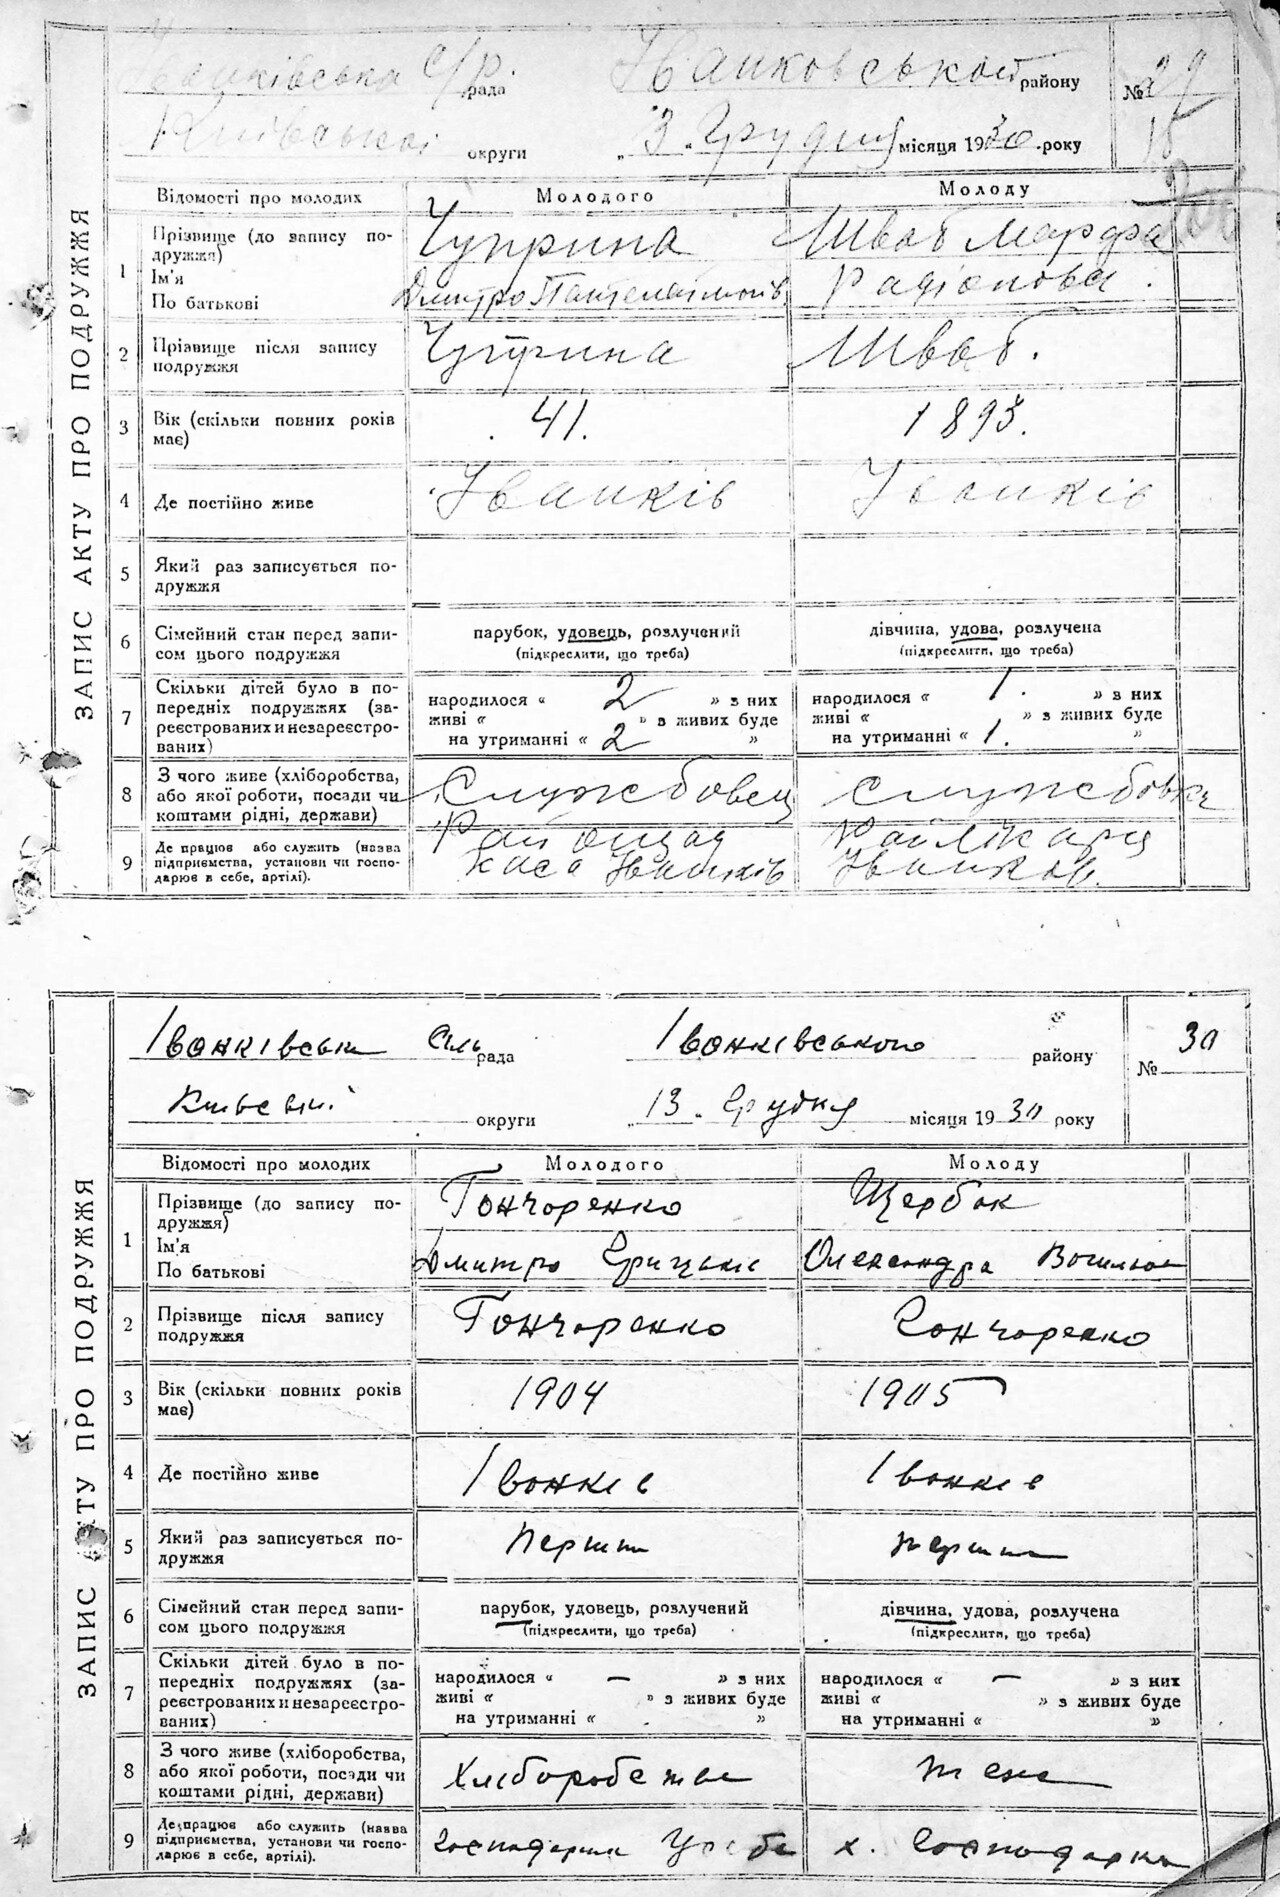 ЗАПИС АКТУ ПРО ПОДРУЖЖЯ
Іванківська с/р. рада Іванковської району № 29
Київської округи „ 3 " Грудня місяця 1930 .року
Відомості про молодих Молодого Молоду
1 Прізвище (до запису по-
дружжя)
Ім'я
По батькові
Чуприна
Дмитро Пантелеімонів
Шваб Марфа
Радіонова.
2 Прізвище після запису
подружжя
Чуприна Шваб.
3 Вік (скільки повних років
має)
41. 1893.
4 Де постійно живе Іванків Іванків
5 Який раз записується по-
дружжя
6 Сімейний стан перед запи-
сом цього подружжя
парубок, удовець, розлучений
(підкреслити, що треба)
дівчина, удова, розлучена
(підкреслити, що треба)
7 Скільки дітей було в по-
передніх подружжях (за-
реєстрованих и незареєстро-
ваних)
народилося « 2 » з них
живі « » з живих буде
на утриманні « 2 »
народилося « 1. » з них
живі « » з живих буде
на утриманні « 1. »
8 З чого живе (хліборобства,
або якої роботи, посади чи
коштами рідні, держави)
Службовец службовка
9 Де працює або служить (назва
підприємства, установи чи госпо-
дарює в себе, артілі).
Райощад
каса Іванків
Райлікарн
Іванков.
ЗАПИС АКТУ ПРО ПОДРУЖЖЯ
Іванківськ Сіль рада Іванківського району № 30
Київській округи „ 13. Грудня місяця 1930 року
Відомості про молодих Молодого Молоду
1 Прізвище (до запису по-
дружжя)
Ім'я
По батькові
Гончаренко
Дмитро Грицьків
Щербак
Олександра Василів
2 Прізвище після запису
подружжя
Гончаренко Гончаренко
3 Вік (скільки повних років
має)
1904 1905
4 Де постійно живе Іванків Іванків
5 Який раз записується по-
дружжя
Перший перший
6 Сімейний стан перед запи-
сом цього подружжя
парубок, удовець, розлучений
(підкреслити, що треба)
дівчина, удова, розлучена
(підкреслити, що треба)
7 Скільки дітей було в по-
передніх подружжях (за-
реєстрованих и незареєстро-
ваних)
народилося « — » з них
живі « » з живих буде
на утриманні « »
народилося « — » з них
живі « » з живих буде
на утриманні « »
8 З чого живе (хліборобства,
або якої роботи, посади чи
коштами рідні, держави)
Хліборобства теж
9 Де працює або служить (назва
підприємства, установи чи госпо-
дарює в себе, артілі).
Господарка У себе х. Господарка